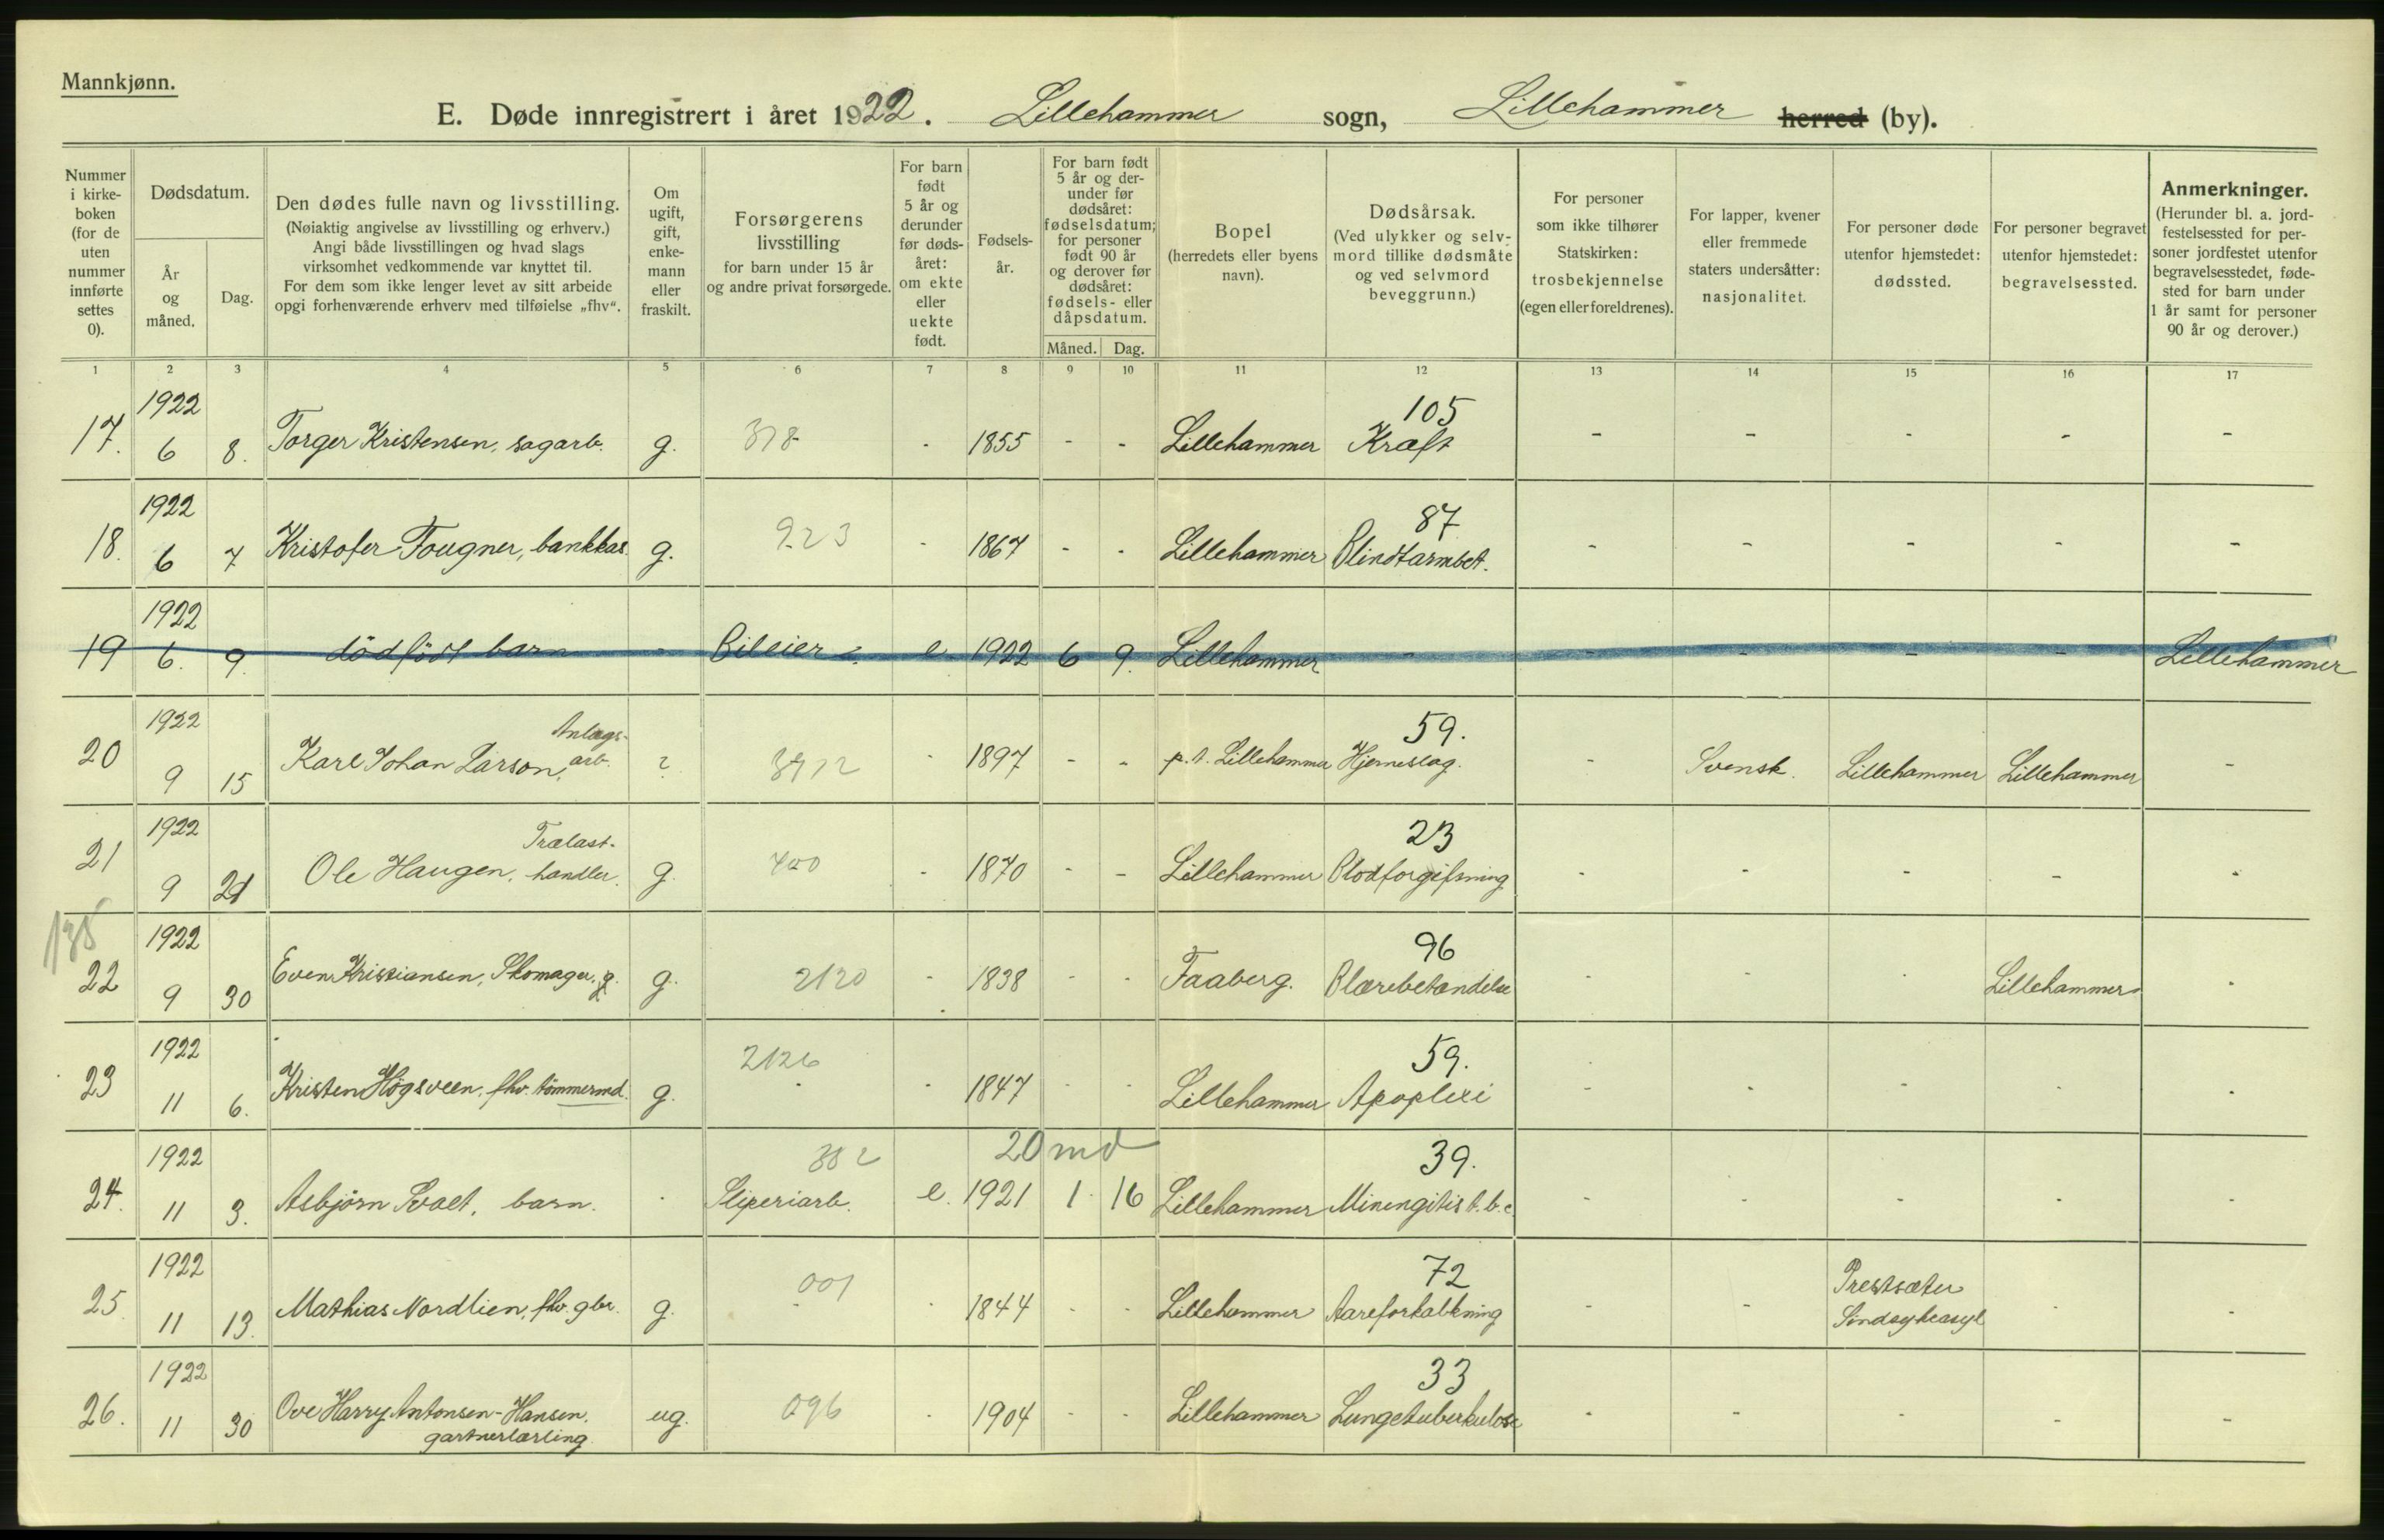 Mannkjønn.
E. Døde innregistrert i året 1922. Lillehammer sogn, Lillehammer herred (by).
Nummer i kirke-boken (for de uten nummer innførte settes 0).
Dødsdatum.
År og måned.
Dag.
Den dødes fulle navn og livsstilling.
(Nøiaktig angivelse av livsstilling og erhverv.)
Angi både livsstillingen og hvad slags
virksomhet vedkommende var knyttet til.
For dem som ikke lenger levet av sitt arbeide
opgi forhenværende erhverv med tilføielse „fhv“.
Om ugift, gift, enke-mann eller fraskilt.
Forsørgerens livsstilling
for barn under 15 år
og andre privat forsørgede.
For barn født 5 år og derunder før døds-året: om ekte eller uekte født.
Fødsels-år.
For barn født 5 år og der-under før dødsåret: fødselsdatum; for personer født 90 år og derover før dødsåret: fødsels- eller dåpsdatum.
Måned. Dag.
Bopel
(herredets eller byens navn).
Dødsårsak.
(Ved ulykker og selv-mord tillike dødsmåte og ved selvmord beveggrunn.)
For personer som ikke tilhører Statskirken: trosbekjennelse (egen eller foreldrenes).
For lapper, kvener eller fremmede staters undersåtter: nasjonalitet.
For personer døde utenfor hjemstedet: dødssted.
For personer begravet utenfor hjemstedet: begravelsessted.
Anmerkninger.
(Herunder bl. a. jord-festelsessted for per-soner jordfestet utenfor begravelsesstedet, føde-sted for barn under 1 år samt for personer 90 år og derover.)
1 2 3 4 5 6 7 8 9 10 11 12 13 14 15 16 17
1922 105
17. 6 8. Torger Kristensen, sagarb. g. 378 - 1855 - - Lillehammer Kræft - - - - -
1922 87
18. 6 7 Kristofer Fougner, bankkas. g. 923 - 1867 - - Lillehammer Blindtarmbet. - - - - -
1922
19 6. 9. dödfödt barn - Bileier e. 1922 6 9. Lillehammer - - - - - Lillehammer
1922 Anlægs- 59.
20 9 15 Karl Johan Larson, arb. ? 3912 - 1897 - - p.t. Lillehammer Hjerneslag. - Svensk. Lillehammer Lillehammer -
1922 Trælast- 23
21 9 21 Ole Haugen, handler. g. 400 - 1870 - - Lillehammer Blodforgiftning - - - - -
135
1922 96
22 9 30 Even Kristiansen, Skomager, g. g. 2120 - 1838 - - Faaberg. Blærebetændelse - - - Lillehammer -
1922 2126 59.
23 11 6. Kristen Högsveen, fhv. tömmermd. g. - - 1847 - - Lillehammer Apoplexi - - - - -
1922 382 20 md 39.
24. 11 3. Asbjörn Svaet, barn. - Sliperiarb. e. 1921 1 16 Lillehammer Minengitis t.b.c. - - - - -
1922 001 72 Prestsæter
25 11 13. Mathias Nordlien, fhv. gbr. g. - - 1844 - - Lillehammer Aareforkalkning - - Sindsykeasyl - -
1922 33
26. 11 30 Ove Harry Antonsen-Hansen, ug. 096 - 1904 - - Lillehammer Lungetuberkulose - - - - -
gartnerlærling